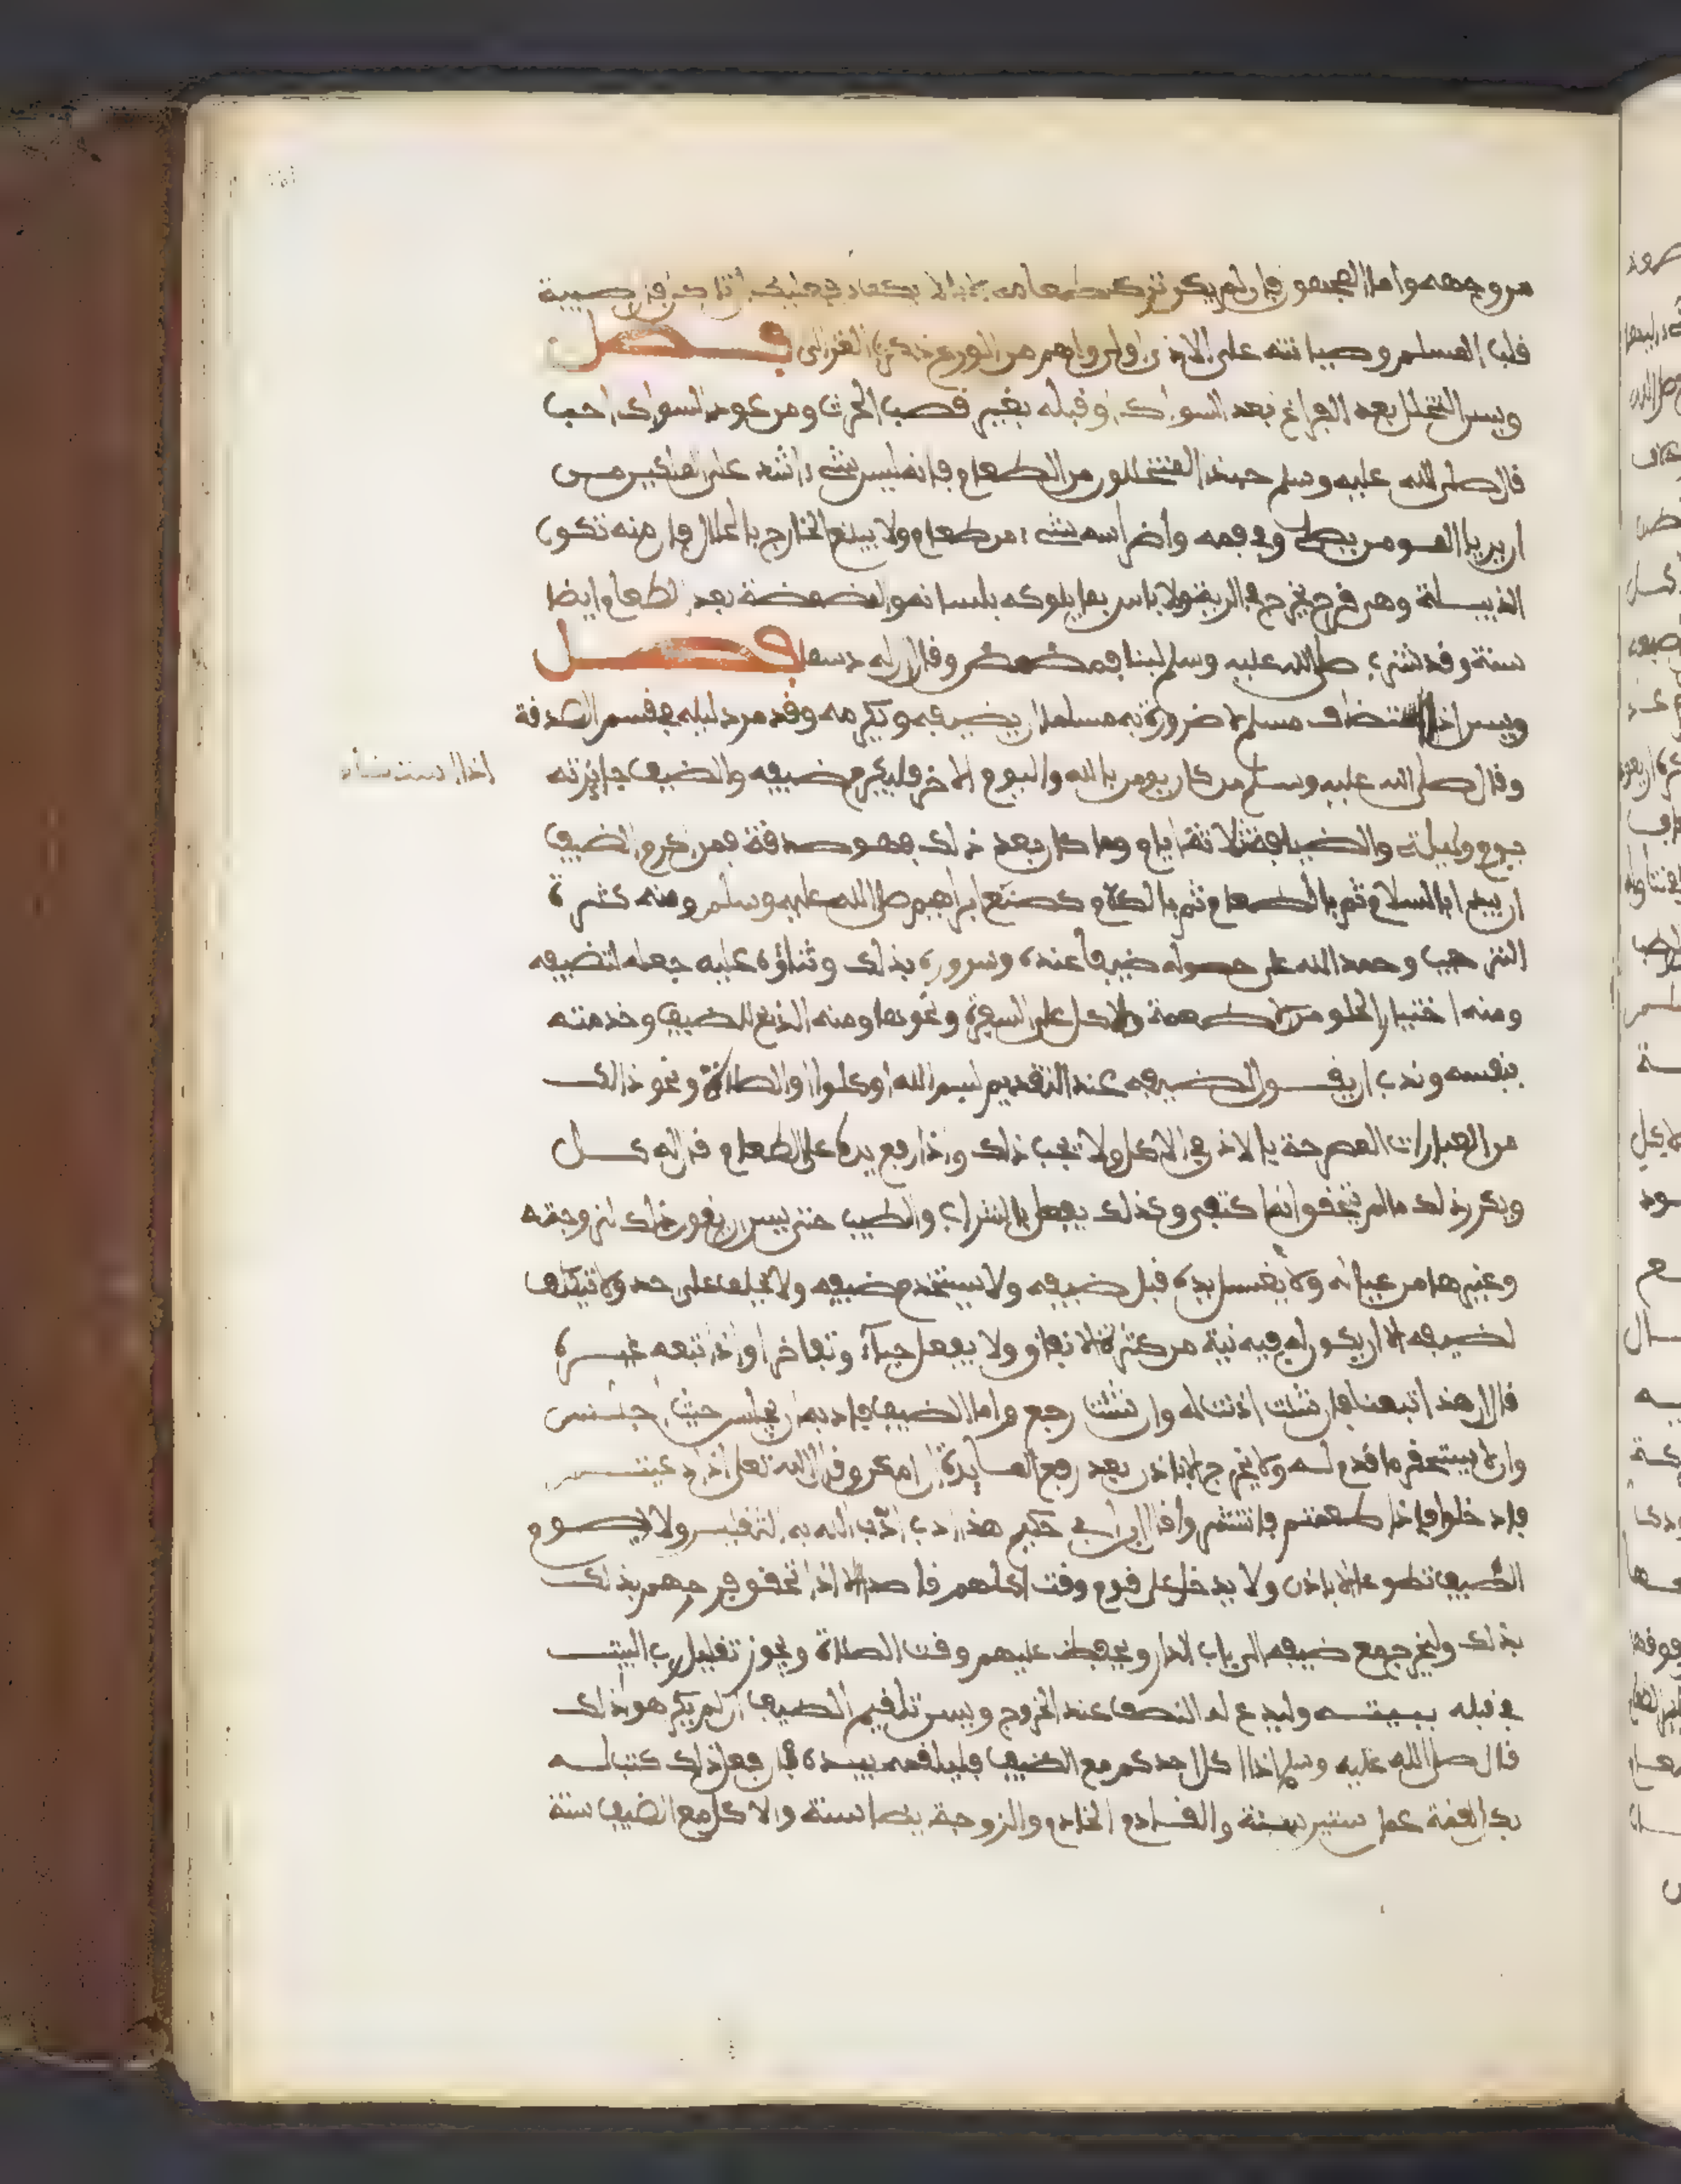 من وجهه واما المحبفو فان لم يكن تركت طعامه
قلب المسلم وصيانته على الاذى اولى واهم من الورع ذكره الغزالى فصل
ويسن التخلل بعد الفراغ بعد السواك او قبله بغير قصب الحرث ومن عود السواك احب
قال صلى الله عليه وسلم حبذا المتخللون من الطعام فانه ليس شىء اشد على الملكين من
ان يريا المومن يصلى وفى فمه واضراسه شىء من طعام ولا يبلع الخارج بالخلال فان منه تكون
الذبيلة وهى قرح يخرج فى الرية ولا باس بما يلوكه بلسانه والمضمضة بعد الطعام ايضا
سنة وقد شرب صلى الله عليه وسلم لبنا فمضمض وقال ان له دسما فصل
ويسن اذا استضاف مسلم لا ضرورة به مسلما ان يضيفه ويكرمه وقد مر دليله فى قسم الصدقة
اذا استضاف
وقال صلى الله عليه وسلم من كان يومن بالله واليوم الاخر فليكرم ضيفه والضيف جايزته
يوم وليلة والضيافة ثلاثة ايام وما كان بعد ذلك فهو صدقة فمن كرم الضيف
ان يبدا بالسلام ثم بالطعام ثم بالكلام كصنع ابراهيم صلى الله عليه وسلم ومنه كثرة
الترحيب وحمد الله على حصوله ضيفا عنده وسروره بذلك وثناؤه عليه جعله لتضيفه
ومنه اختيار الحلو من الاطعمة والاكل على السفرة ونحوها ومنه الذبح للضيف وخدمته
بنفسه وندب ان يقول لضيفه عند التقديم بسم الله او كلوا او الصلاة ونحو ذالك
من العبارات المصرحة بالاذن فى الاكل ولا تجب ذلك واذا رفع يده على الطعام قال له كل
ويكرر ذلك ما لم يتحقق انه اكتفى وكذلك يفعل بالشراب والطيب حتى يسن ان يقول ذلك لزوجته
وغيرها من عياله ولا يغسل يده قبل ضيفه ولا يستخدم ضيفه ولا يحلف على احد ولا يتكلف
لضيفه الا ان يكون له فيه نية من كثرة الانفاق ولا يفعل حياء وتفاخرا واذا تبعه غيره
قال ان هذا تبعنا فان شئت اذنت له وان شئت رجع واما الضيف فادبه ان يجلس حيث اجلس
وان لا يستحقر ما قدم له ولا يخرج الا باذن بعد رفع المايدة ان امكن وقد قال الله تعلى اذا دعيتم
فادخلوا فاذا طعمتم فانتشروا قال ابن ابى حكيم هذا ادب ادّب الله به الثقيل ولا يصوم
الضيف تطوعا الا باذن ولا يدخل على قوم وقت اكلهم قاصدا الا اذا تحقق فرحهم بذلك
بذلك وليخرج مع ضيفه الى باب الدار ويحفظ عليهم وقت الصلاة ويجوز تقليل رب البيت
فى قبله ببيته وليدع له الضيف عند الخروج ويسن تلقيم الضيف ان لم يكره هو ذلك
قال صلى الله عليه وسلم اذا اكل احدكم مع الضيف فليلقمه بيده فان فعل ذلك كتب له
بكل لقمة عمل سنتين سنة والقادم الخادم والزوجة ايضا سنة والاكل مع الضيف سنة